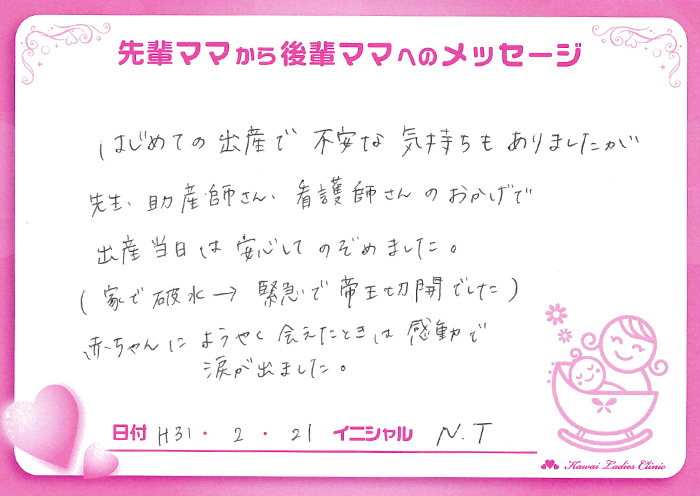 先輩ママから後輩ママへのメッセージ
はじめての出産で不安な気持ちもありましたが
先生、助産師さん、看護師さんのおかげで
出産当日は安心してのぞめました。
(家で破水→緊急で帝王切開でした)
赤ちゃんにようやく会えたときは感動で
涙が出ました。
日付 H31・2・21 イニシャル N.T
Kawai Ladies Clinic